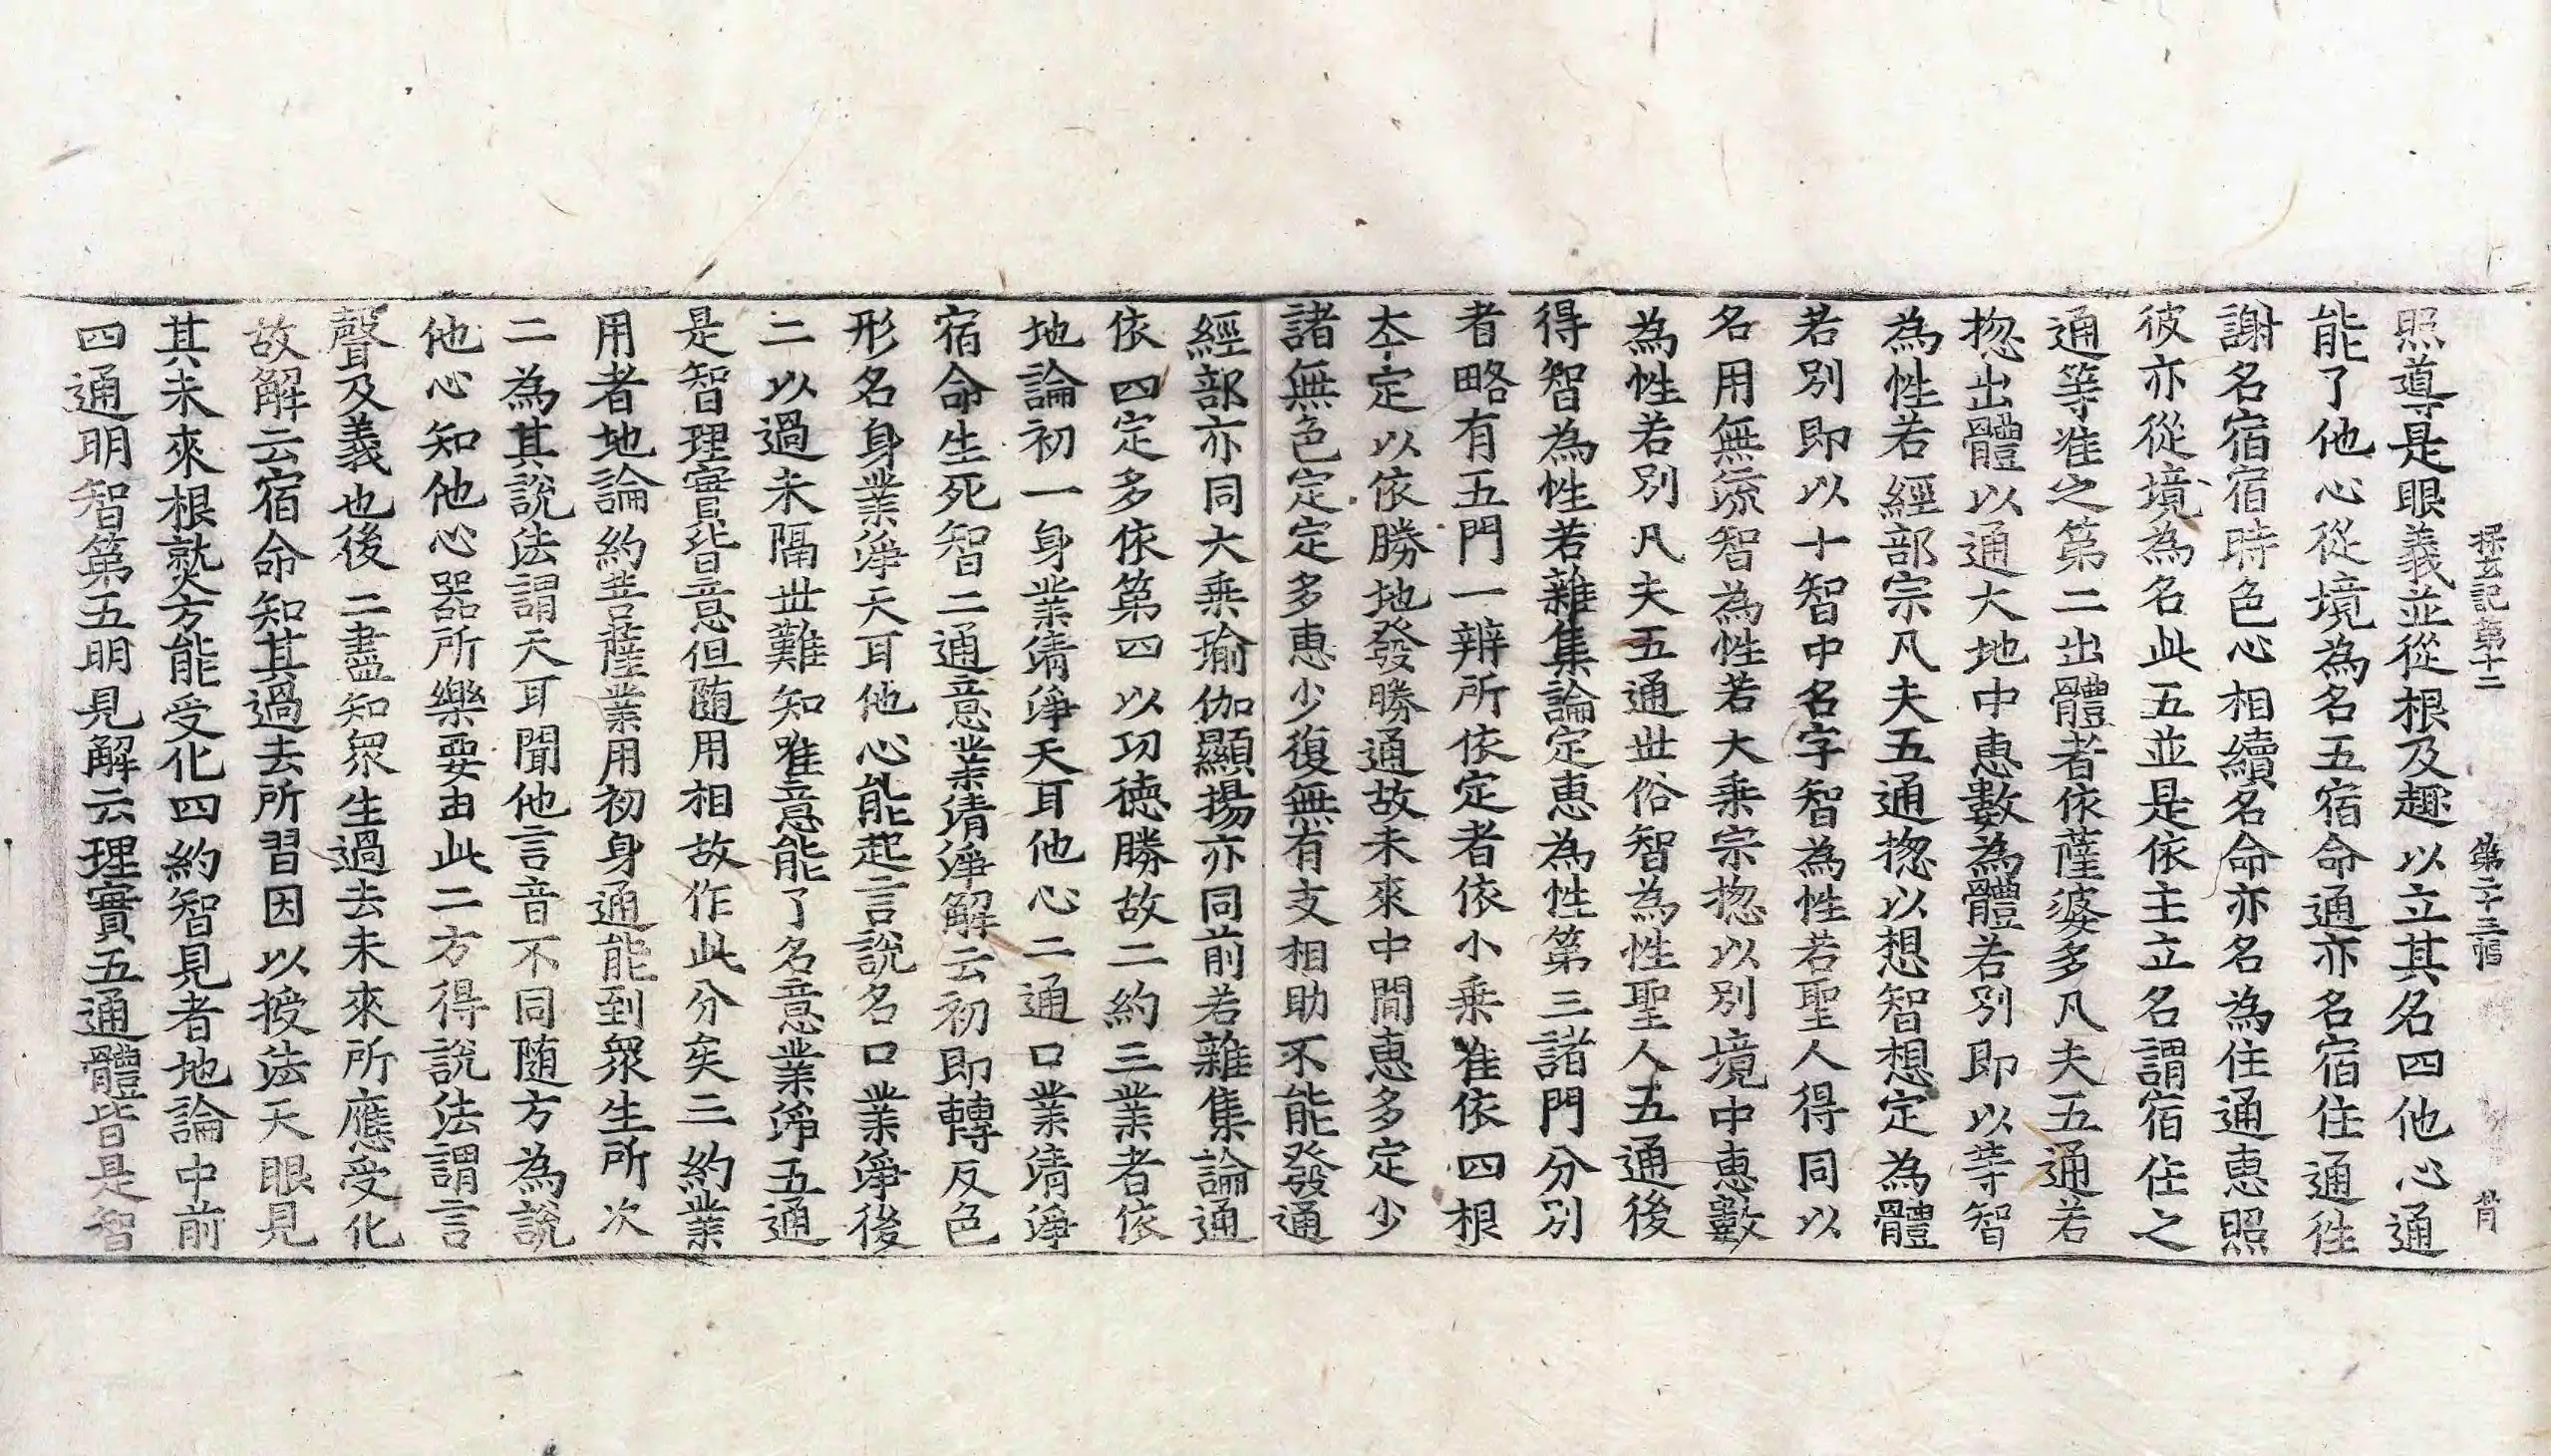 探玄記第十二 第二十三張 貲
照導是眼義並從根及趣以立其名四他心通
能了他心從境為名五宿命通亦名宿住通徃
謝名宿宿時色心相續名命亦名為住通惠照
彼亦從境為名此五並是依主立名謂宿住之
通等准之第二出體者依薩婆多凡夫五通若
揔出體以通大地中惠數為體若別即以等智
為性若經部宗凡夫五通揔以想智想定為體
若別即以十智中名字智為性若聖人得同以
名用無漏智為性若大乗宗揔以別境中惠數
為性若別凡夫五通世俗智為性聖人五通後
得智為性若雜集論定惠為性第三諸門分別
者略有五門一辨所依定者依小乗准依四根
本定以依勝地發勝通故未來中間惠多定少
諸無色定定多惠少復無有支相助不能發通
經部亦同大乗瑜伽顯揚亦同前若雜集論通
依四定多依第四以功徳勝故二約三業者依
地論初一身業清淨天耳他心二通口業清淨
宿命生死智二通意業清淨解云初即轉反色
形名身業淨天耳他心能起言說名口業淨後
二以過未隔世難知唯意能了名意業淨五通
是智理實皆意但随用相故作此分矣三約業
用者地論約菩薩業用初身通能到衆生所次
二為其說法謂天耳聞他言音不同随方為說
他心知他心器所樂要由此二方得說法謂言
聲及義也後二盡知衆生過去未來所應受化
故解云宿命知其過去所習因以授法天眼見
其未來根熟方能受化四約智見者地論中前
四通明智第五明見解云理實五通體皆是智